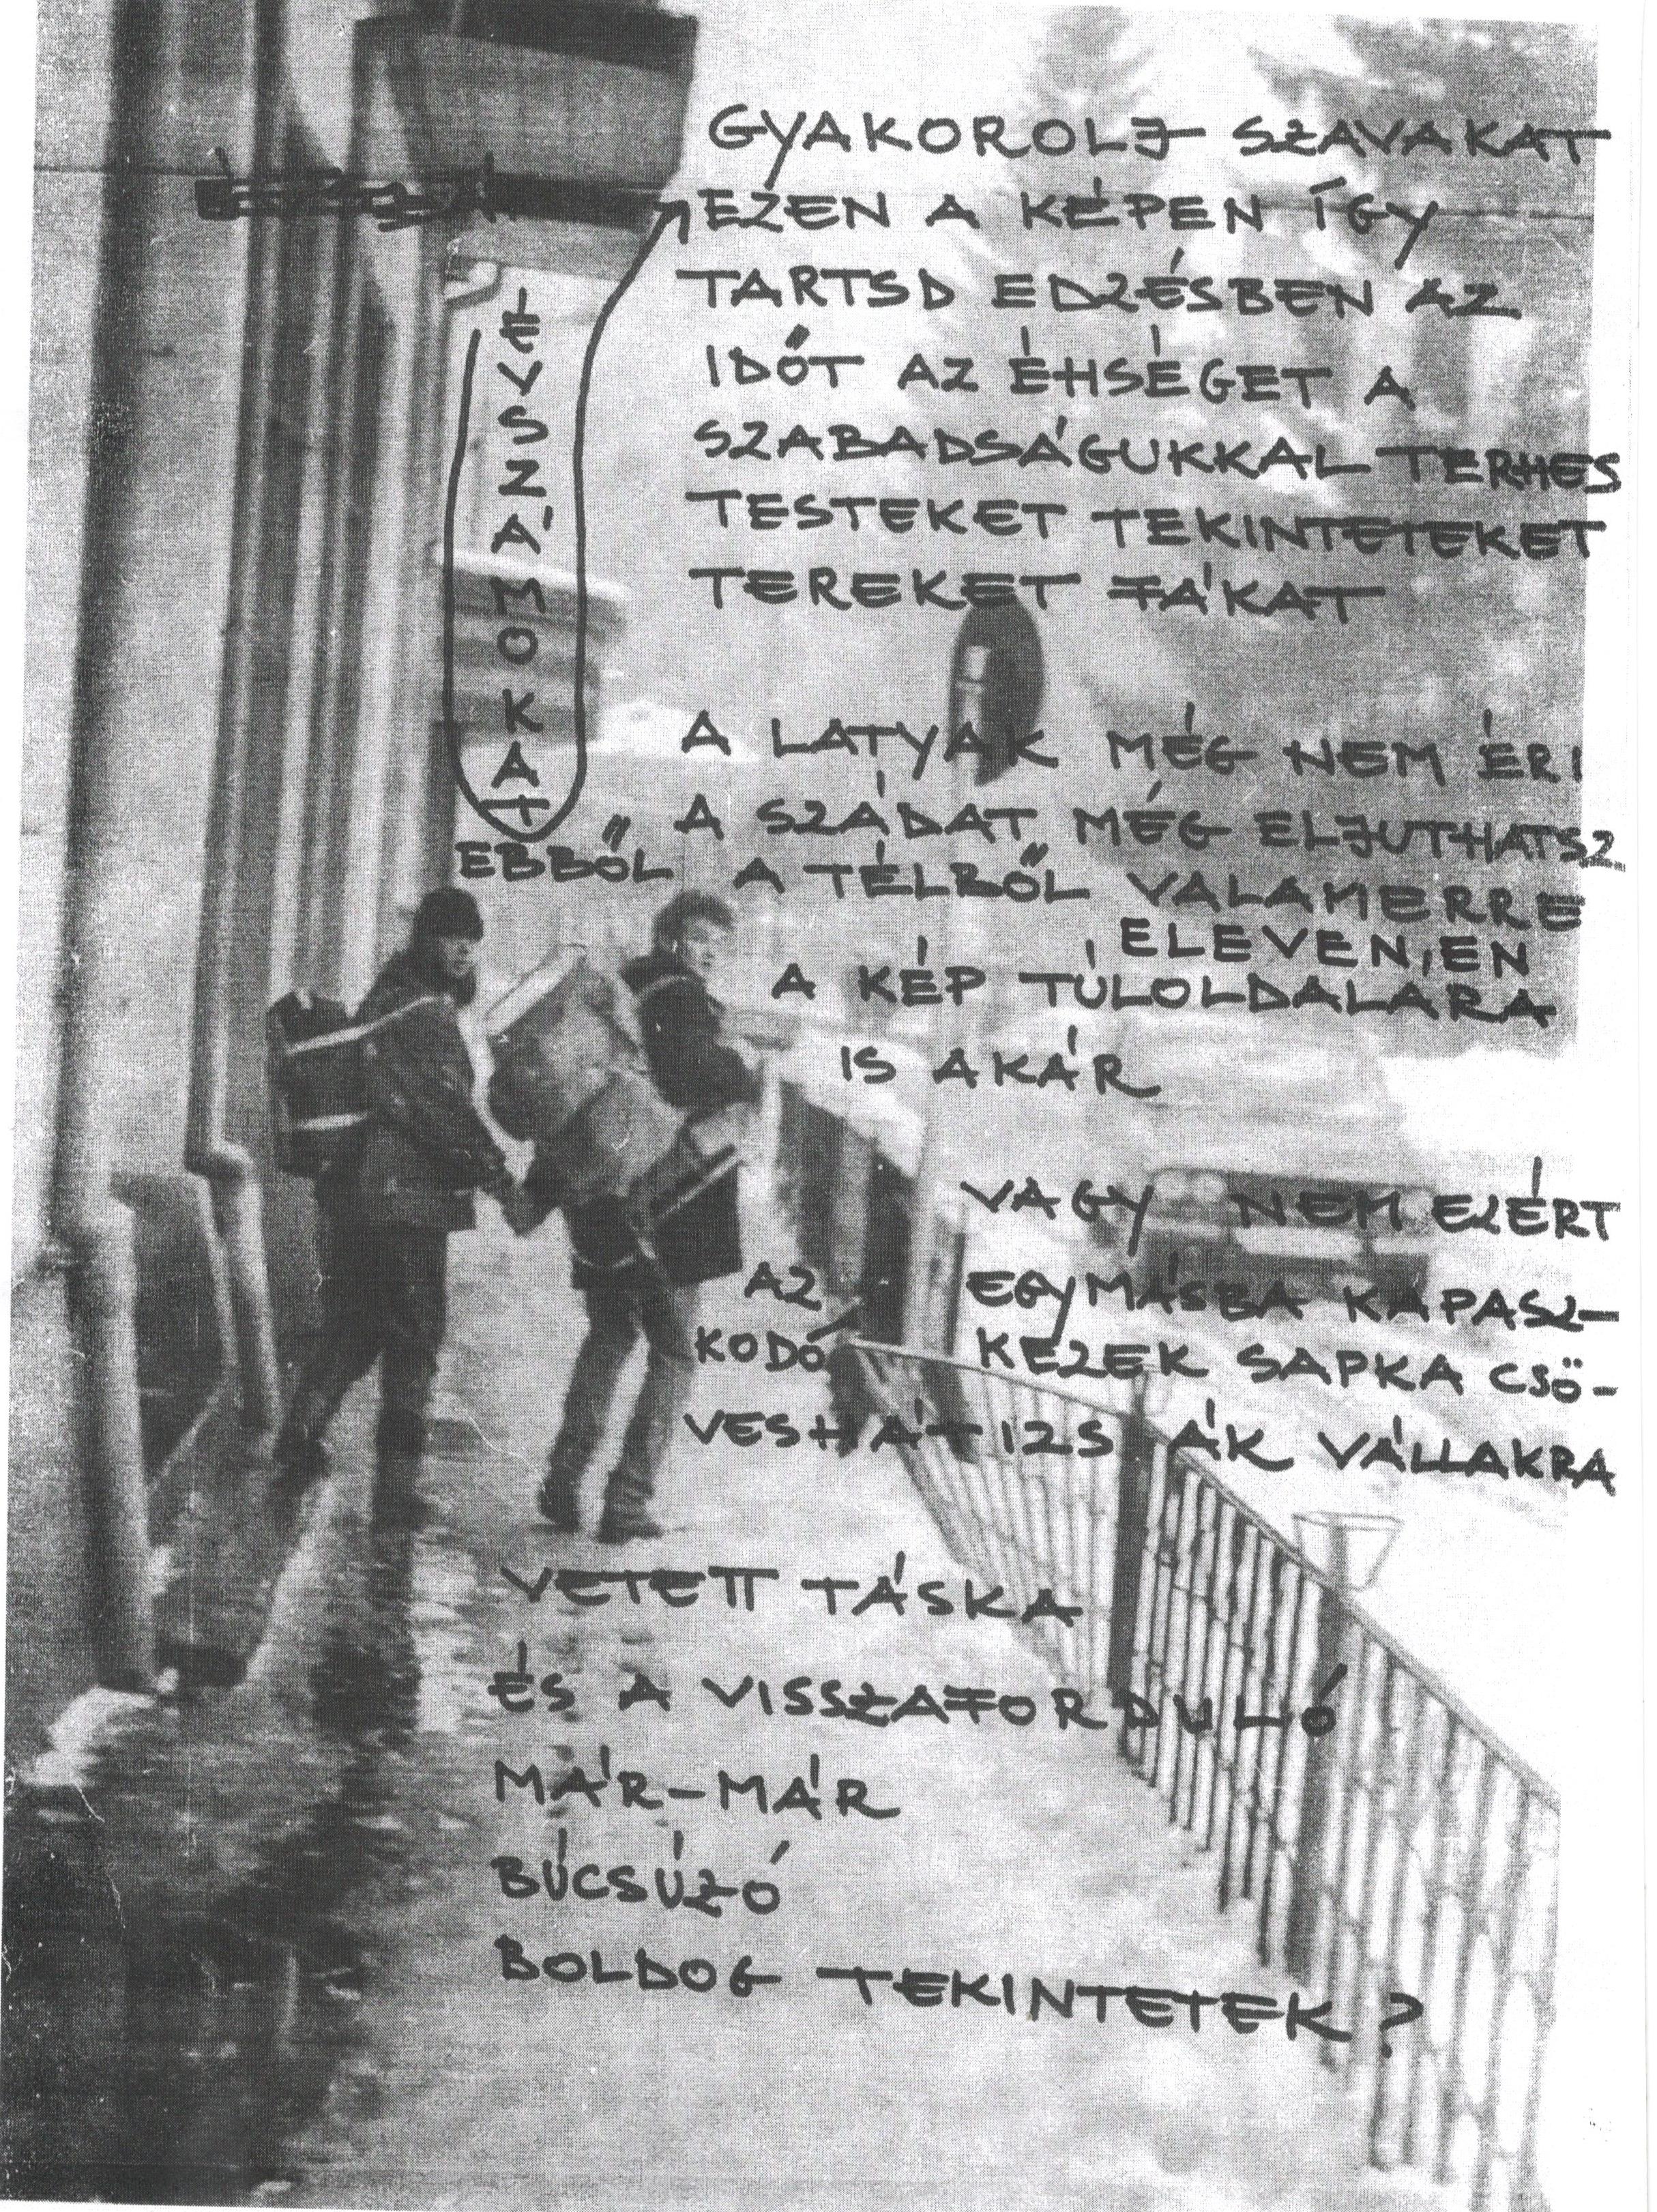 GYAKOROLJ SZAVAKAT
ÉVSZÁMOKAT
EZEN A KÉPEN ÍGY
TARTSD EDZÉSBEN AZ
IDŐT AZ ÉHSÉGET A
SZABADSÁGUKKAL TERHES
TESTEKET TEKINTETEKET
TEREKET FÁKAT
A LATYAK MÉG NEM ÉRI
A SZÁDAT MÉG ELJUTHATSZ
EBBŐL A TÉLBŐL VALAMERRE
ELEVEN,EN
A KÉP TÚLOLDALÁRA
IS AKÁR
VAGY NEM EZÉRT
AZ EGYMÁSBA KAPASZ-
KODÓ KEZEK SAPKA CSÖ-
VESHÁTIZSÁK VÁLLAKRA
VETETT TÁSKA
ÉS A VISSZAFORDULÓ
MÁR-MÁR
BÚCSÚZÓ
BOLDOG TEKINTETEK?